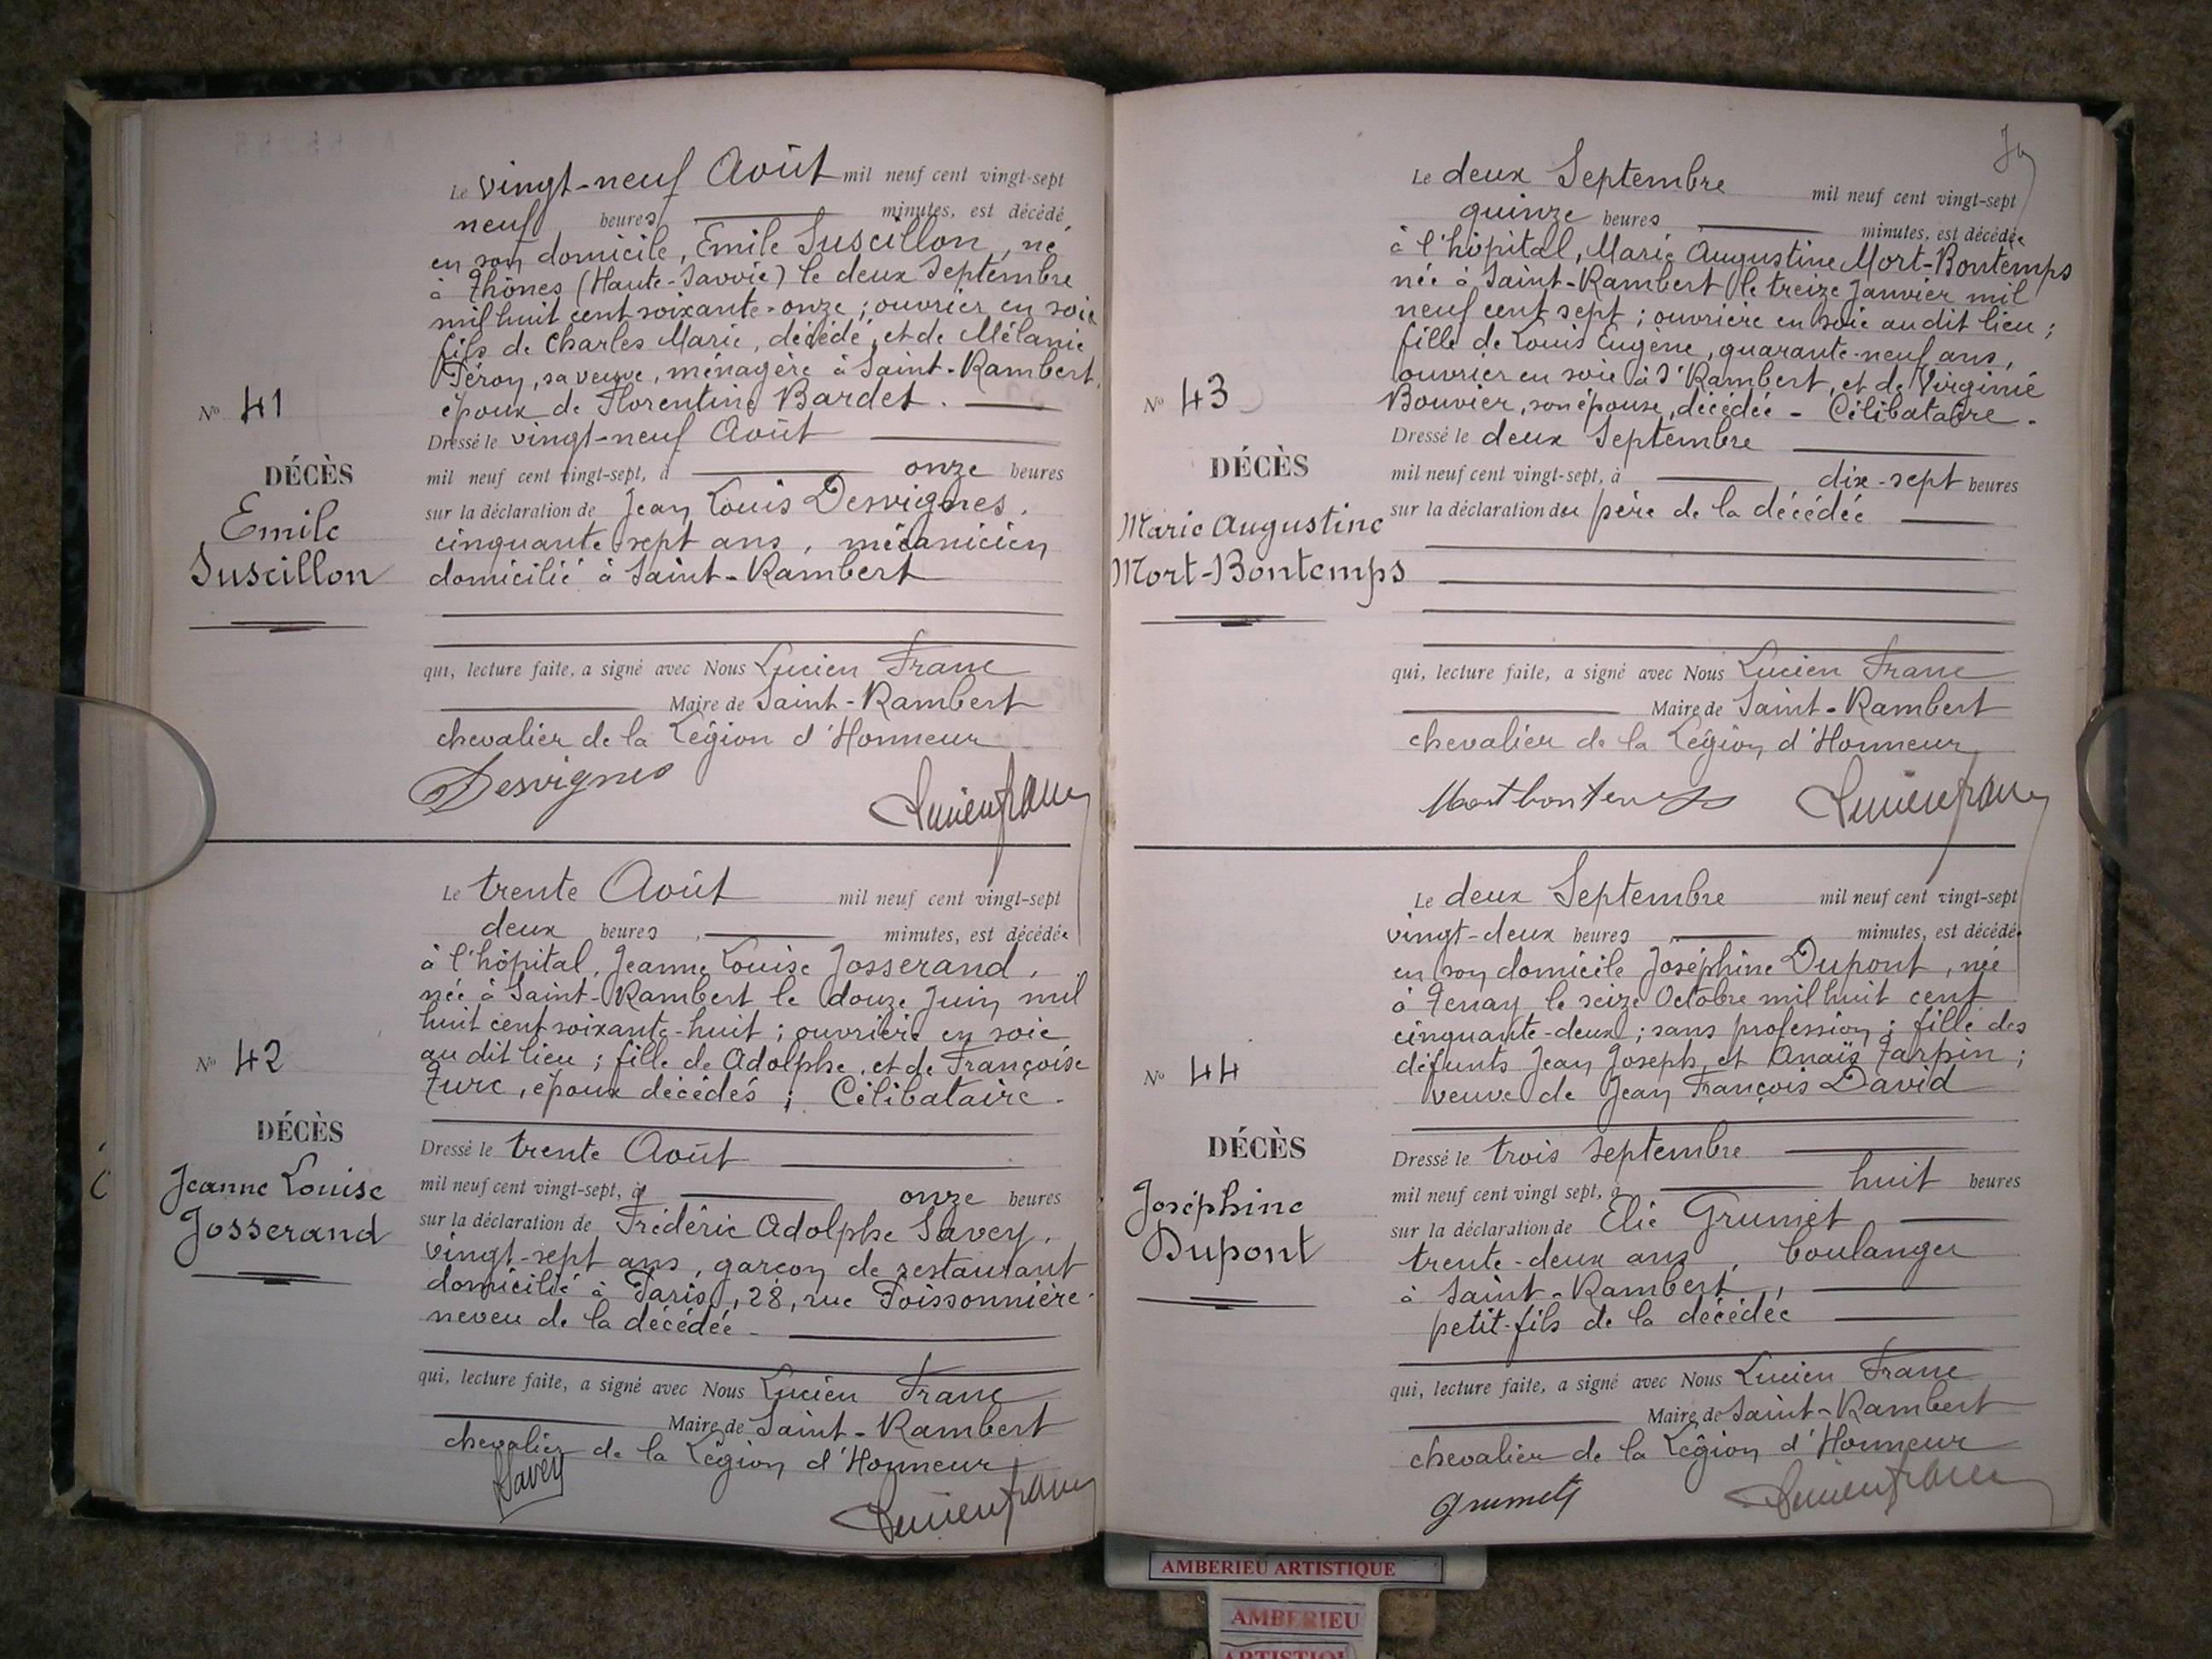 Le vingt-neuf Août mil neuf cent vingt-sept
neuf heures minutes, est décédé
en son domicile, Emile Suscillon, né
à Thônes (Haute-Savoie) le deux Septembre
mil huit cent soixante-onze ; ouvrier en soie
fils de Charles Marie, décédé, et de Mélanie
Péroy, sa veuve, ménagère à Saint-Rambert,
époux de Florentine Bardet.
Dressé le vingt-neuf Août
mil neuf cent vingt-sept, à onze heures
sur la déclaration de Jean Louis Desvignes,
cinquante-sept ans, mécanicien
domicilié à Saint-Rambert
qui, lecture faite, a signé avec Nous Lucien Franc
Maire de Saint-Rambert
chevalier de la Légion d'Honneur
Desvignes Lucien Franc
No 41
DÉCÈS
Emile
Suscillon
Le trente Août mil neuf cent vingt-sept
deux heures, minutes, est décédée
à l'hôpital, Jeanne Louise Josserand,
née à Saint-Rambert le douze Juin mil
huit cent soixante-huit ; ouvrière en soie
au dit lieu ; fille de Adolphe, et de Françoise
Furc, époux décédés ; Célibataire.
Dressé le trente Août
mil neuf cent vingt-sept, à onze heures
sur la déclaration de Frédéric Adolphe Savey,
vingt-sept ans, garçon de restaurant
domicilié à Paris, 28, rue Poissonnière
neveu de la décédée
qui, lecture faite, a signé avec Nous Lucien Franc
Maire de Saint-Rambert
chevalier de la Légion d'Honneur
Savey Lucien Franc
No 42
DÉCÈS
Jeanne Louise
Josserand
Le deux Septembre mil neuf cent vingt-sept
quinze heures, minutes, est décédée
à l'hôpital, Marie Augustine Mort-Bontemps
née à Saint-Rambert le treize Janvier mil
neuf cent sept ; ouvrière en soie au dit lieu ;
fille de Louis Eugène, quarante-neuf ans,
ouvrier en soie à St Rambert, et de Virginie
Bouvier, son épouse, décédée - Célibataire.
Dressé le deux Septembre
mil neuf cent vingt-sept, à dix-sept heures
sur la déclaration du père de la décédée
qui, lecture faite, a signé avec Nous Lucien Franc
Maire de Saint-Rambert
chevalier de la Légion d'Honneur
Mortbontemps Lucien Franc
No 43
DÉCÈS
Marie Augustine
Mort-Bontemps
Le deux Septembre mil neuf cent vingt-sept
vingt-deux heures minutes, est décédée
en son domicile Joséphine Dupont, née
à Tenay le seize Octobre mil huit cent
cinquante-deux ; sans profession ; fille des
défunts Jean Joseph et Anaïs Tarpin ;
veuve de Jean François David
Dressé le trois septembre
mil neuf cent vingt sept, à huit heures
sur la déclaration de Elie Grumet
trente-deux ans, boulanger
à Saint-Rambert,
petit-fils de la décédée
qui, lecture faite, a signé avec Nous Lucien Franc
Maire de Saint-Rambert
chevalier de la Légion d'Honneur
Grumet Lucien Franc
No 44
DÉCÈS
Joséphine
Dupont
AMBERIEU ARTISTIQUE
AMBERIEU
ARTISTIQUE